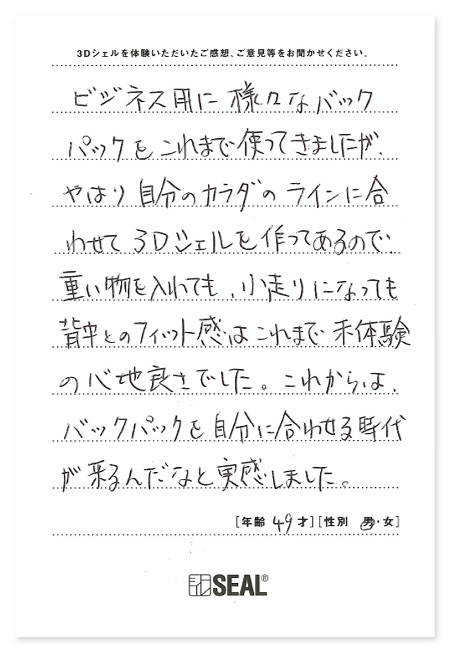 3Dシェルを体験いただいたご感想、ご意見等をお聞かせください。
ビジネス用に様々なバック
パックをこれまで使ってきましたが、
やはり自分のカラダのラインに合
わせて3Dシェルを作ってあるので、
重い物を入れても、小走りになっても
背中とのフィット感はこれまで未体験
の心地良さでした。これからは、
バックパックを自分に合わせる時代
が来るんだなと実感しました。
[年齢 49才][性別 男・女]
SEAL®